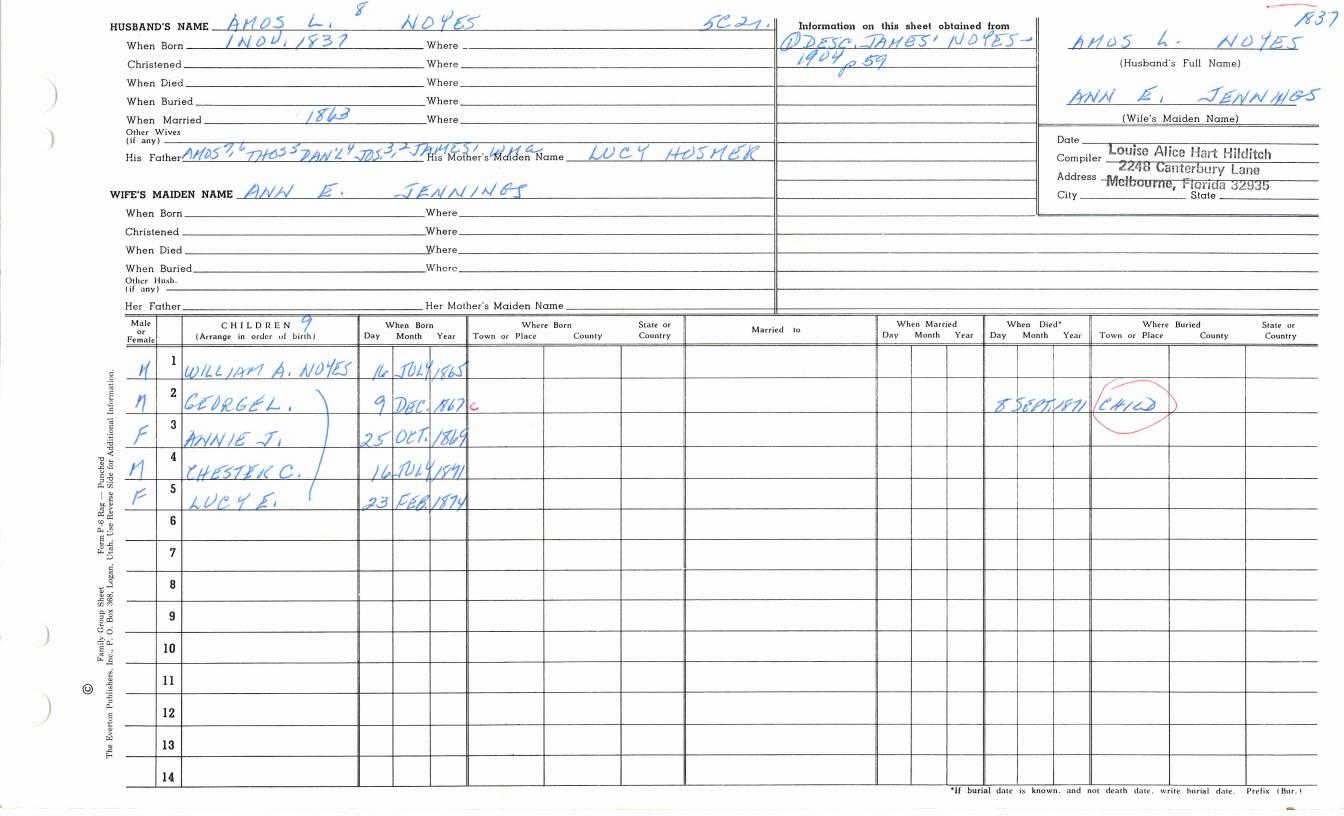 1837
HUSBAND'S NAME AMOS L. 8 NOYES 5C27.
When Born 1 NOV. 1837 Where
Christened Where
When Died Where
When Buried Where
When Married 1863 Where
Other Wives
(if any)
His Father AMOS 7, 6 THOS 5 DAN'L 4 JOS. 3, 2 JAMES 1, WMG His Mother's Maiden Name LUCY HOSMER
WIFE'S MAIDEN NAME ANN E. JENNINGS
When Born Where
Christened Where
When Died Where
When Buried Where
Other Husb.
(if any)
Her Father Her Mother's Maiden Name
Information on this sheet obtained from
① DESC. JAMES' NOYES -
1904 p 59
AMOS L. NOYES
(Husband's Full Name)
ANN E. JENNINGS
(Wife's Maiden Name)
Date
Compiler Louise Alice Hart Hilditch
Address 2248 Canterbury Lane
Melbourne, Florida 32935
City State
Male or Female CHILDREN 9 (Arrange in order of birth) When Born Day Month Year Where Born Town or Place County State or Country Married to When Married Day Month Year When Died* Day Month Year Where Buried Town or Place County State or Country
M 1 WILLIAM A. NOYES 16 JULY 1865
M 2 GEORGE L. 9 DEC. 1867 c 8 SEPT. 1871 CHILD
F 3 ANNIE J. 25 OCT. 1869
M 4 CHESTER C. 16 JULY 1871
F 5 LUCY E. 23 FEB. 1874
6
7
8
9
10
11
12
13
14
*If burial date is known, and not death date, write burial date. Prefix (Bur.)
Family Group Sheet Form P-6 Rag — Punched
© The Everton Publishers, Inc., P. O. Box 368, Logan, Utah, Use Reverse Side for Additional Information.